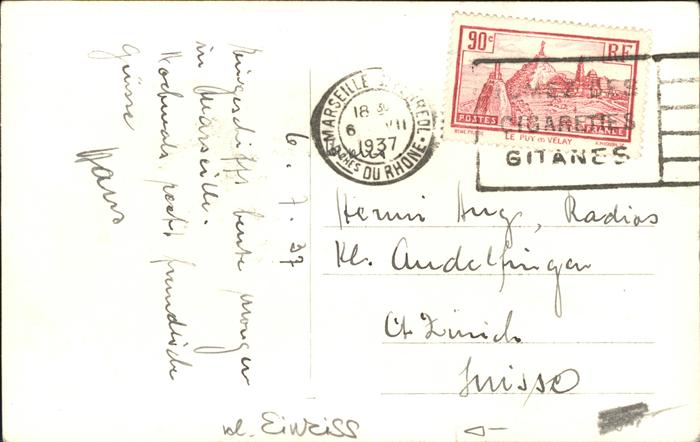 Eingeschifft heute morgen
in Marseille.
Nochmals recht freundliche
Grüsse
Hans
6. 7. 37
MARSEILLE
18
6 VII
1937
BCHES DU RHONE
90c RF
POSTES FRANCE
LE PUY EN VELAY
DES
CIGARETTES
GITANES
Hermi Hug, Radios
Kl. Andelfingen
Ct. Zürich
Suisse